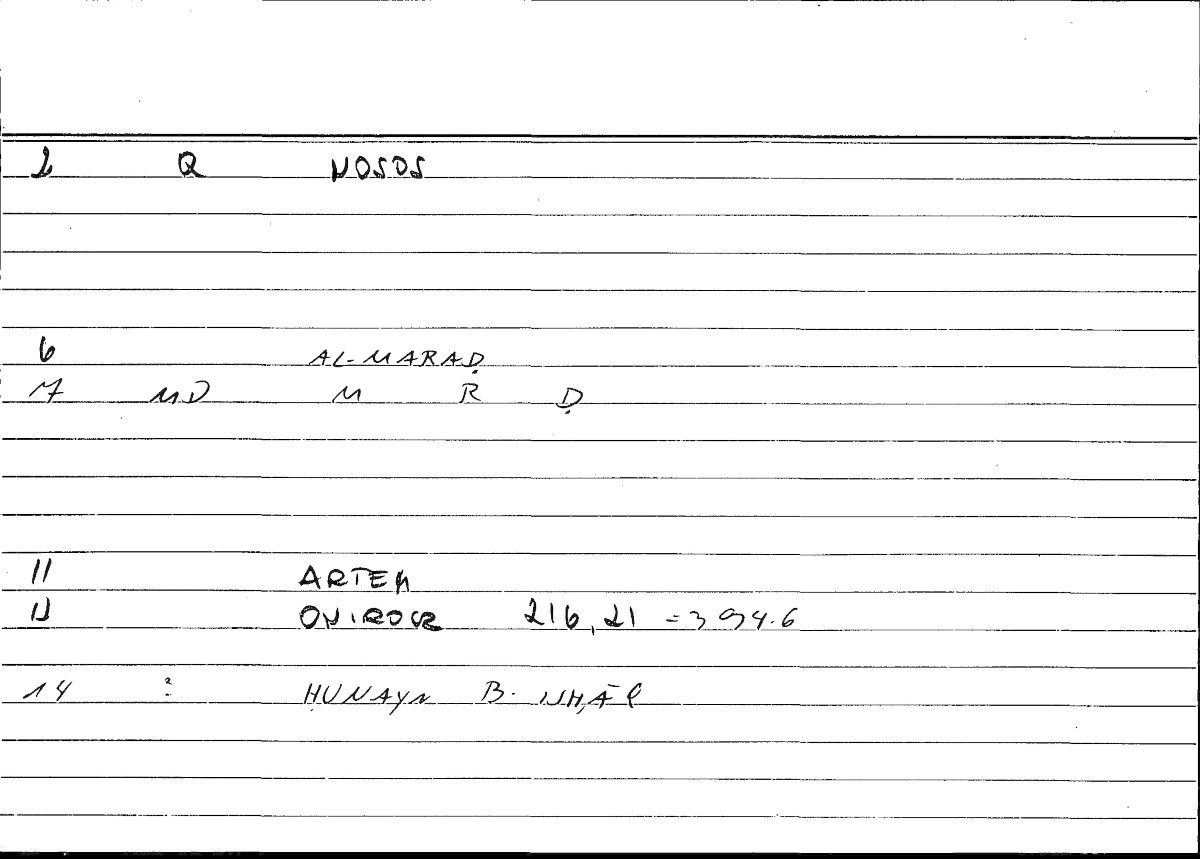 2 Q NOSOS
6 AL-MARAḌ
7 MD M R Ḍ
11 ARTEM
12 ONIROCR 216,21 = 394.6
14 : ḤUNAYN B. ISḤĀQ